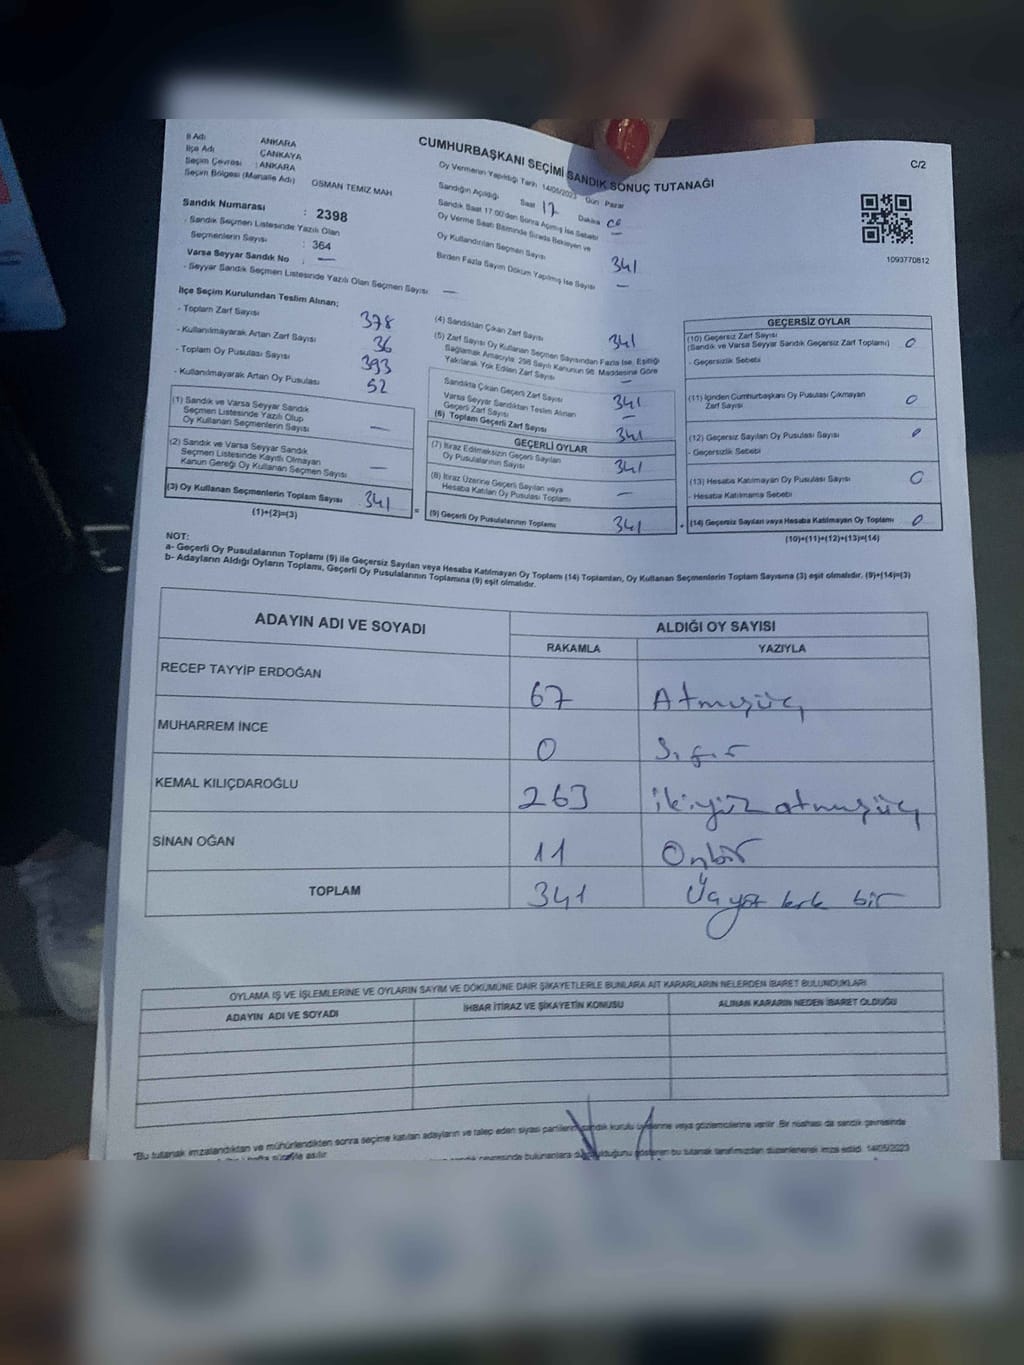 İl Adı ANKARA
İlçe Adı ÇANKAYA
Seçim Çevresi : ANKARA
Seçim Bölgesi (Mahalle Adı) OSMAN TEMİZ MAH
CUMHURBAŞKANI SEÇİMİ SANDIK SONUÇ TUTANAĞI
C/2
Oy Vermenin Yapıldığı Tarih 14/05/2023 Gün Pazar
Sandığın Açıldığı Saat 17 Dakika
Sandık Saat 17:00'den Sonra Açılmış İse Sebebi —
Oy Verme Saati Bitiminde Sırada Bekleyen ve
Oy Kullandırılan Seçmen Sayısı 341
Birden Fazla Sayım Döküm Yapılmış İse Sayısı —
1093770812
Sandık Numarası : 2398
- Sandık Seçmen Listesinde Yazılı Olan
Seçmenlerin Sayısı : 364
Varsa Seyyar Sandık No : —
- Seyyar Sandık Seçmen Listesinde Yazılı Olan Seçmen Sayısı —
İlçe Seçim Kurulundan Teslim Alınan;
- Toplam Zarf Sayısı 378
- Kullanılmayarak Artan Zarf Sayısı 36
- Toplam Oy Pusulası Sayısı 393
- Kullanılmayarak Artan Oy Pusulası 52
(1) Sandık ve Varsa Seyyar Sandık
Seçmen Listesinde Yazılı Olup
Oy Kullanan Seçmenlerin Sayısı —
(2) Sandık ve Varsa Seyyar Sandık
Seçmen Listesinde Kayıtlı Olmayan
Kanun Gereği Oy Kullanan Seçmen Sayısı —
(3) Oy Kullanan Seçmenlerin Toplam Sayısı 341 =
(1)+(2)=(3)
(4) Sandıktan Çıkan Zarf Sayısı 341
(5) Zarf Sayısı Oy Kullanan Seçmen Sayısından Fazla İse, Eşitliği
Sağlamak Amacıyla 298 Sayılı Kanunun 98. Maddesine Göre
Yakılarak Yok Edilen Zarf Sayısı —
Sandıkta Çıkan Geçerli Zarf Sayısı 341
Varsa Seyyar Sandıktan Teslim Alınan
Geçerli Zarf Sayısı —
(6) Toplam Geçerli Zarf Sayısı 341
GEÇERLİ OYLAR
(7) İtiraz Edilmeksizin Geçerli Sayılan
Oy Pusulalarının Sayısı 341
(8) İtiraz Üzerine Geçerli Sayılan veya
Hesaba Katılan Oy Pusulası Toplamı —
(9) Geçerli Oy Pusulalarının Toplamı 341 +
GEÇERSİZ OYLAR
(10) Geçersiz Zarf Sayısı
(Sandık ve Varsa Seyyar Sandık Geçersiz Zarf Toplamı) 0
- Geçersizlik Sebebi
(11) İçinden Cumhurbaşkanı Oy Pusulası Çıkmayan
Zarf Sayısı 0
(12) Geçersiz Sayılan Oy Pusulası Sayısı 0
- Geçersizlik Sebebi
(13) Hesaba Katılmayan Oy Pusulası Sayısı 0
- Hesaba Katılmama Sebebi
(14) Geçersiz Sayılan veya Hesaba Katılmayan Oy Toplamı 0
(10)+(11)+(12)+(13)=(14)
NOT:
a- Geçerli Oy Pusulalarının Toplamı (9) ile Geçersiz Sayılan veya Hesaba Katılmayan Oy Toplamı (14) Toplamları, Oy Kullanan Seçmenlerin Toplam Sayısına (3) eşit olmalıdır. (9)+(14)=(3)
b- Adayların Aldığı Oyların Toplamı, Geçerli Oy Pusulalarının Toplamına (9) eşit olmalıdır.
ADAYIN ADI VE SOYADI ALDIĞI OY SAYISI
RAKAMLA YAZIYLA
RECEP TAYYİP ERDOĞAN 67 Atmışüç
MUHARREM İNCE 0 Sıfır
KEMAL KILIÇDAROĞLU 263 ikiyüz atmışüç
SİNAN OĞAN 11 Onbir
TOPLAM 341 Üçyüz kırk bir
OYLAMA İŞ VE İŞLEMLERİNE VE OYLARIN SAYIM VE DÖKÜMÜNE DAİR ŞİKAYETLERLE BUNLARA AİT KARARLARIN NELERDEN İBARET BULUNDUKLARI
ADAYIN ADI VE SOYADI İHBAR İTİRAZ VE ŞİKAYETİN KONUSU ALINAN KARARIN NEDEN İBARET OLDUĞU
*Bu tutanak imzalandıktan ve mühürlendikten sonra seçime katılan adayların ve talep eden siyasi partilerin sandık kurulu üyelerine veya gözlemcilerine verilir. Bir nüshası da sandık çevresinde
bu tutanak tarafımızdan düzenlenerek imza edildi. 14/05/2023